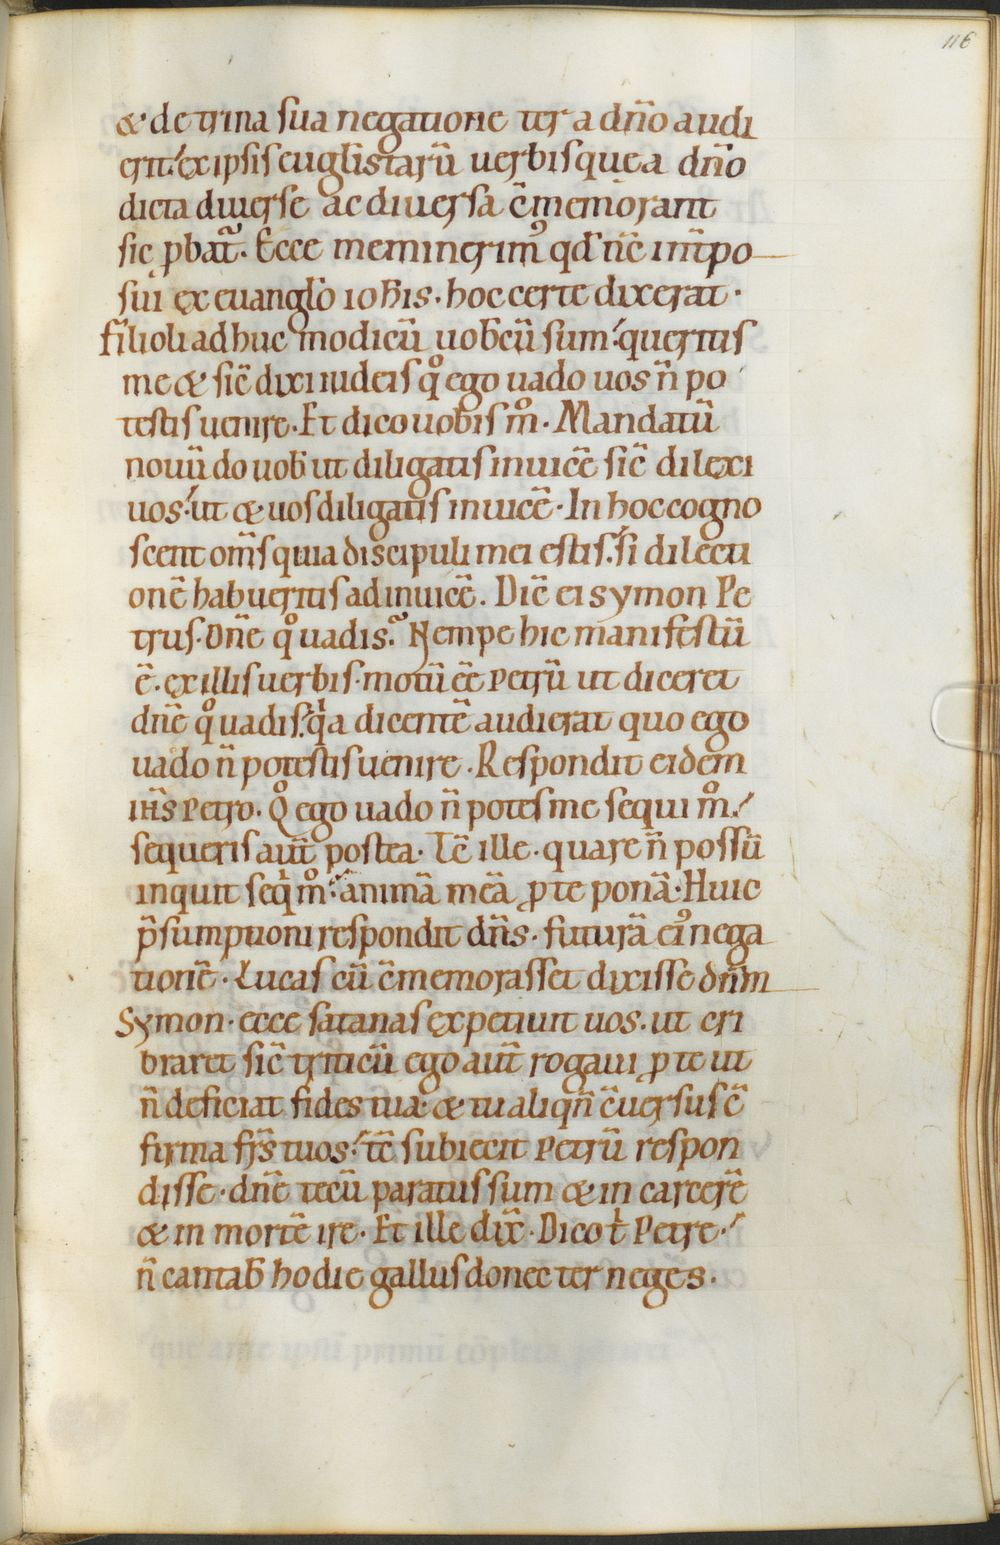 116
& de trina sua negatione ter a dño audi
erit. ex ipsis euglistarũ uerbis que a dño
dicta diuerse ac diuersa c̃memorant
sic pbat̃. Ecce meminerim᾽ qđ nc̃ int̃po
sui ex euanglo ioħis. hoc certe dixerat.
filioli adhuc modicũ uob̃cũ sum. queritis
me & sic̃ dixi iudeis qͦ ego uado uos ñ po
testis uenire. Et dico uobis mͦ. Mandatũ
nouũ do uob̃ ut diligatis inuicẽ sic̃ dilexi
uos. ut & uos diligatis inuicẽ. In hoc cogno
scent om̃s quia discipuli mei estis. si dilecti
onẽ habueritis ad inuicẽ. Dic̃ ei symon Pe
trus. Dñe qͦ uadis. Nempe hic manifestũ
ẽ. ex illis uerbis. motũ eẽ Petrũ ut diceret
dñe qͦ uadis. qa dicentẽ audierat quo ego
uado ñ potestis uenire. Respondit eidem
ih̃s Petro. Qͦ ego uado ñ potes me sequi mͦ.
sequeris aut̃ postea. Tc̃ ille. quare ñ possũ
inquit seqi mͦ. animã meã p te ponã. Huic
p̃sumptioni respondit dñs. futurã ei᾽ nega
tionẽ. Lucas cũ c̃memorasset dixisse dñm
Symon. ecce satanas expetiuit uos. ut cri
braret sic̃ triticũ ego aut̃ rogaui p te ut
ñ deficiat fides tua. & tu aliqñ c̃uersus c̃
firma fr̃s tuos. tc̃ subiecit Petrũ respon
disse. dñe tecũ paratus sum & in carcerẽ
& in mortẽ ire. Et ille dix̃. Dico tͥ Petre.
ñ cantab̃ hodie gallus donec ter neges.